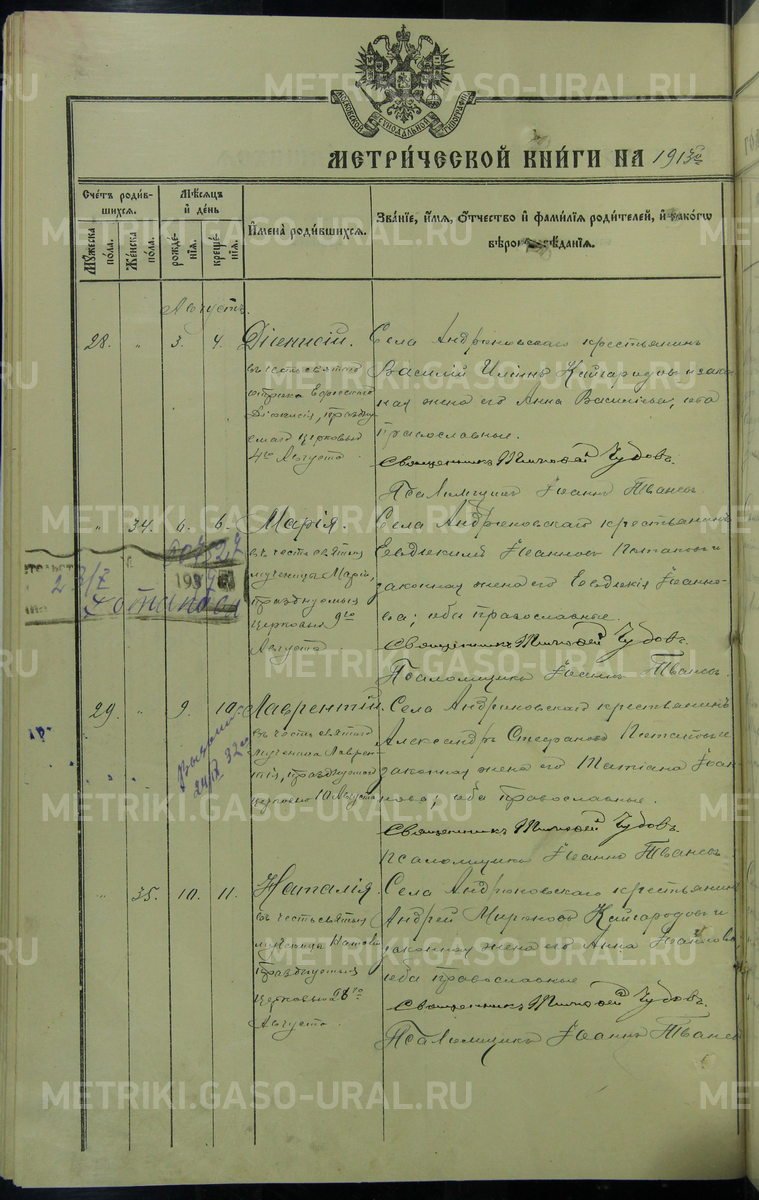 МОСКОВСКОЙ СѴНОДАЛЬНОЙ ТИПОГРАФІИ
МЕТРИ́ЧЕСКОЙ КНИ́ГИ НА 1913 го
Сче́тъ роди́вшихся.
Му́жеска по́ла.
Же́нска по́ла.
Мѣ́сяцъ и҆ де́нь
рожде́нїя.
креще́нїя.
И҆мена̀ роди́вшихся.
Зва́нїе, и҆́мя, ѻ҆́тчество и҆ фами́лїя роди́телей, и҆ како́гѡ вѣроисповѣ́данїя.
Августъ.
28. " 3. 4. Діонисій.
въ честь святаго
отрока Ефесскаго
Діонисія, празднуемаго церковью
4го Августа.
Села Андроновскаго крестьянинъ
Василій Ильинъ Кайгородовъ и законная жена его Анна Васильева; оба
православные.
Священникъ Тимоѳей Чудовъ.
Псаломщикъ Іоаннъ
" 34. 6. 6. Марія.
въ честь святыя
мученицы Маріи,
празднуемыя
церковью 9го
Августа.
Села Андроновскаго крестьянинъ
Евдокимъ Іоанновъ Потаповъ и
законная жена его Евдокія Іоаннова; оба православные.
Священникъ Тимоѳей Чудовъ.
Псаломщикъ Іоаннъ
29. " 9. 10. Лаврентій.
въ честь святаго
мученика Лаврентія, празднуемаго
церковью 10 Августа
Села Андроновскаго крестьянинъ
Александръ Стефановъ Потаповъ и
законная жена его Татіана Іоаннова; оба православные.
Священникъ Тимоѳей Чудовъ.
Псаломщикъ Іоаннъ
" 35. 10. 11. Наталія.
въ честь святыя
мученицы Наталіи
празднуемыя
церковью 26го
Августа.
Села Андроновскаго крестьянинъ
Андрей Мироновъ Кайгородовъ и
законная жена его Анна Іоаннова
оба православные
Священникъ Тимоѳей Чудовъ.
Псаломщикъ Іоаннъ
METRIKI.GASO-URAL.RU